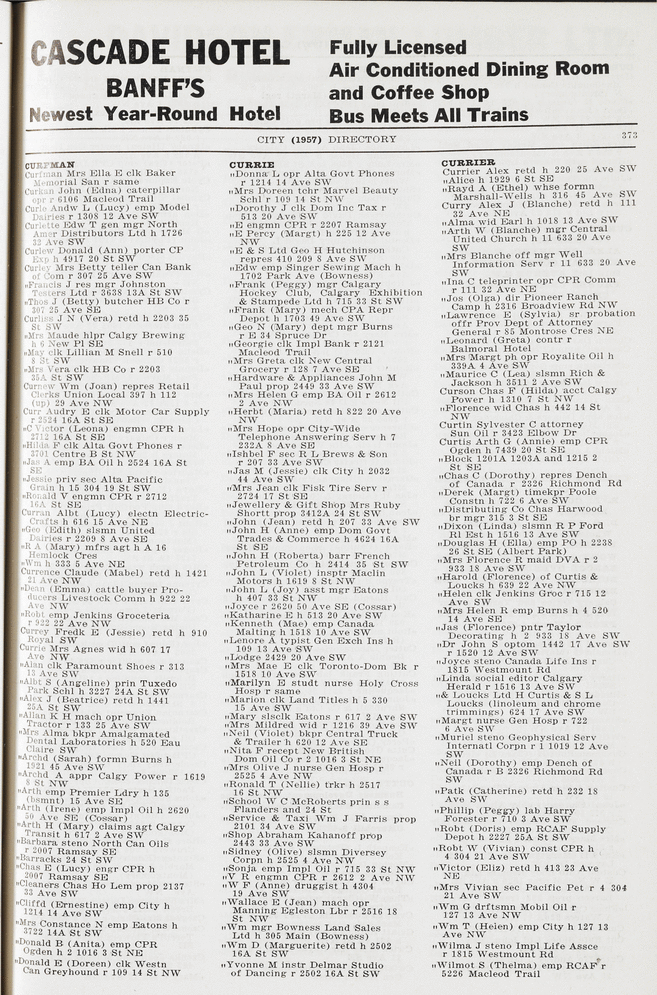 CASCADE HOTEL
BANFF'S
Newest Year-Round Hotel
Fully Licensed
Air Conditioned Dining Room
and Coffee Shop
Bus Meets All Trains
CITY (1957) DIRECTORY
373
CURFMAN
Curfman Mrs Ella E clk Baker
Memorial San r same
Curkan John (Edna) caterpillar
opr r 6106 Macleod Trail
Curle Andw L (Lucy) emp Model
Dairies r 1308 12 Ave SW
Curlette Edw T gen mgr North
Amer Distributors Ltd h 1726
32 Ave SW
Curlew Donald (Ann) porter CP
Exp h 4917 20 St SW
Curley Mrs Betty teller Can Bank
of Com r 307 25 Ave SW
"Francis J res mgr Johnston
Testers Ltd r 3638 13A St SW
"Thos J (Betty) butcher HB Co r
307 25 Ave SE
Curliss J N (Vera) retd h 2203 35
St SW
"Mrs Maude hlpr Calgy Brewing
h 6 New Pl SE
"May clk Lillian M Snell r 510
8 St SW
"Mrs Vera clk HB Co r 2203
35A St SW
Curnew Wm (Joan) repres Retail
Clerks Union Local 397 h 112
(up) 29 Ave NW
Curr Audry E clk Motor Car Supply
r 2524 16A St SE
"C Victor (Leona) engmn CPR h
2712 16A St SE
"Hilda F clk Alta Govt Phones r
3701 Centre B St NW
"Jas A emp BA Oil h 2524 16A St
SE
"Jessie priv sec Alta Pacific
Grain h 15 304 19 St SW
"Ronald V engmn CPR r 2712
16A St SE
Curran Albt (Lucy) electn Electric-
Crafts h 616 15 Ave NE
"Geo (Edith) slsmn United
Dairies r 2209 8 Ave SE
"R A (Mary) mfrs agt h A 16
Hemlock Cres
"Wm h 333 5 Ave NE
Currence Claude (Mabel) retd h 1421
21 Ave NW
"Dean (Emma) cattle buyer Pro-
ducers Livestock Comm h 922 22
Ave NW
"Robt emp Jenkins Groceteria
r 922 22 Ave NW
Currey Fredk E (Jessie) retd h 910
Royal SW
Currie Mrs Agnes wid h 607 17
Ave NW
"Alan clk Paramount Shoes r 313
13 Ave SW
"Albt S (Angeline) prin Tuxedo
Park Schl h 3227 24A St SW
"Alex J (Beatrice) retd h 1441
25A St SW
"Allan K H mach opr Union
Tractor r 133 25 Ave SW
"Mrs Alma bkpr Amalgamated
Dental Laboratories h 520 Eau
Claire SW
"Archd (Sarah) formn Burns h
1921 45 Ave SW
"Archd A appr Calgy Power r 1619
8 St NW
"Arth emp Premier Ldry h 135
(bsmnt) 15 Ave SE
"Arth (Irene) emp Impl Oil h 2620
50 Ave SE (Cossar)
"Arth H (Mary) claims agt Calgy
Transit h 617 2 Ave SW
"Barbara steno North Can Oils
r 2007 Ramsay SE
"Barracks 24 St SW
"Chas E (Lucy) engr CPR h
2007 Ramsay SE
"Cleaners Chas Ho Lem prop 2137
33 Ave SW
"Cliffd (Ernestine) emp City h
1214 14 Ave SW
"Mrs Constance N emp Eatons h
3722 14A St SW
"Donald B (Anita) emp CPR
Ogden h 2 1016 3 St NE
"Donald E (Doreen) clk Westn
Can Greyhound r 109 14 St NW
CURRIE
"Donna L opr Alta Govt Phones
r 1214 14 Ave SW
"Mrs Doreen tchr Marvel Beauty
Schl r 109 14 St NW
"Dorothy J clk Dom Inc Tax r
513 20 Ave SW
"E engmn CPR r 2207 Ramsay
"E Percy (Margt) h 225 12 Ave
NW
"E & S Ltd Geo H Hutchinson
repres 410 209 8 Ave SW
"Edw emp Singer Sewing Mach h
1702 Park Ave (Bowness)
"Frank (Peggy) mgr Calgary
Hockey Club, Calgary Exhibition
& Stampede Ltd h 715 33 St SW
"Frank (Mary) mech CPA Repr
Depot h 1703 49 Ave SW
"Geo N (Mary) dept mgr Burns
r E 34 Spruce Dr
"Georgie clk Impl Bank r 2121
Macleod Trail
"Mrs Greta clk New Central
Grocery r 128 7 Ave SE
"Hardware & Appliances John M
Paul prop 2449 33 Ave SW
"Mrs Helen G emp BA Oil r 2612
2 Ave NW
"Herbt (Maria) retd h 822 20 Ave
NW
"Mrs Hope opr City-Wide
Telephone Answering Serv h 7
232A 8 Ave SE
"Ishbel F sec R L Brews & Son
r 207 33 Ave SW
"Jas M (Jessie) clk City h 2032
44 Ave SW
"Mrs Jean clk Fisk Tire Serv r
2724 17 St SE
"Jewellery & Gift Shop Mrs Ruby
Shortt prop 3412A 24 St SW
"John (Jean) retd h 207 33 Ave SW
"John H (Anne) emp Dom Govt
Trades & Commerce h 4624 16A
St SE
"John H (Roberta) barr French
Petroleum Co h 2414 35 St SW
"John L (Violet) insptr Maclin
Motors h 1619 8 St NW
"John L (Joy) asst mgr Eatons
h 407 33 St NW
"Joyce r 2620 50 Ave SE (Cossar)
"Katharine E h 513 20 Ave SW
"Kenneth (Mae) emp Canada
Malting h 1518 10 Ave SW
"Lenore A typist Gen Exch Ins h
109 13 Ave SW
"Lodge 2429 20 Ave SW
"Mrs Mae E clk Toronto-Dom Bk r
1518 10 Ave SW
"Marilyn E studt nurse Holy Cross
Hosp r same
"Marion clk Land Titles h 5 330
15 Ave SW
"Mary slsclk Eatons r 617 2 Ave SW
"Mrs Mildred wid r 1216 39 Ave SW
"Neil (Violet) bkpr Central Truck
& Trailer h 620 12 Ave SE
"Nita F recept New British
Dom Oil Co r 2 1016 3 St NE
"Mrs Olive J nurse Gen Hosp r
2525 4 Ave NW
"Ronald T (Nellie) trkr h 2517
16 St NW
"School W C McRoberts prin s s
Flanders and 24 St
"Service & Taxi Wm J Farris prop
2101 34 Ave SW
"Shop Abraham Kahanoff prop
2443 33 Ave SW
"Sidney (Olive) slsmn Diversey
Corpn h 2525 4 Ave NW
"Sonja emp Impl Oil r 715 33 St NW
"V R engmn CPR r 2612 2 Ave NW
"W F (Anne) druggist h 4304
19 Ave SW
"Wallace E (Jean) mach opr
Manning Egleston Lbr r 2516 18
St NW
"Wm mgr Bowness Land Sales
Ltd h 305 Main (Bowness)
"Wm D (Marguerite) retd h 2502
16A St SW
"Yvonne M instr Delmar Studio
of Dancing r 2502 16A St SW
CURRIER
Currier Alex retd h 220 25 Ave SW
"Alice h 1929 6 St SE
"Rayd A (Ethel) whse formn
Marshall-Wells h 316 45 Ave SW
Curry Alex J (Blanche) retd h 111
32 Ave NE
"Alma wid Earl h 1018 13 Ave SW
"Arth W (Blanche) mgr Central
United Church h 11 633 20 Ave
SW
"Mrs Blanche off mgr Well
Information Serv r 11 633 20 Ave
SW
"Ina C teleprinter opr CPR Comm
r 111 32 Ave NE
"Jos (Olga) dir Pioneer Ranch
Camp h 2316 Broadview Rd NW
"Lawrence E (Sylvia) sr probation
offr Prov Dept of Attorney
General r 85 Montrose Cres NE
"Leonard (Greta) contr r
Balmoral Hotel
"Mrs Margt ph opr Royalite Oil h
339A 4 Ave SW
"Maurice C (Lea) slsmn Rich &
Jackson h 3511 2 Ave SW
Curson Chas F (Hilda) acct Calgy
Power h 1310 7 St NW
"Florence wid Chas h 442 14 St
NW
Curtin Sylvester C attorney
Sun Oil r 3423 Elbow Dr
Curtis Arth G (Annie) emp CPR
Ogden h 7439 20 St SE
"Block 1201A 1203A and 1215 2
St SE
"Chas C (Dorothy) repres Dench
of Canada r 2326 Richmond Rd
"Derek (Margt) timekpr Poole
Constn h 722 6 Ave SW
"Distributing Co Chas Harwood
br mgr 315 3 St SE
"Dixon (Linda) slsmn R P Ford
Rl Est h 1516 13 Ave SW
"Douglas H (Ella) emp PO h 2238
26 St SE (Albert Park)
"Mrs Florence R maid DVA r 2
933 18 Ave SW
"Harold (Florence) of Curtis &
Loucks h 639 22 Ave NW
"Helen clk Jenkins Groc r 715 12
Ave SW
"Mrs Helen R emp Burns h 4 520
14 Ave SE
"Jas (Florence) pntr Taylor
Decorating h 2 933 18 Ave SW
"Dr John S optom 1442 17 Ave SW
r 1520 12 Ave SW
"Joyce steno Canada Life Ins r
1815 Westmount Rd
"Linda social editor Calgary
Herald r 1516 13 Ave SW
"& Loucks Ltd H Curtis & S L
Loucks (linoleum and chrome
trimmings) 624 17 Ave SW
"Margt nurse Gen Hosp r 722
6 Ave SW
"Muriel steno Geophysical Serv
Internatl Corpn r 1 1019 12 Ave
SW
"Neil (Dorothy) emp Dench of
Canada r B 2326 Richmond Rd
SW
"Patk (Catherine) retd h 232 18
Ave SW
"Phillip (Peggy) lab Harry
Forester r 710 3 Ave SW
"Robt (Doris) emp RCAF Supply
Depot h 2227 25A St SW
"Robt W (Vivian) const CPR h
4 304 21 Ave SW
"Victor (Eliz) retd h 413 23 Ave
NE
"Mrs Vivian sec Pacific Pet r 4 304
21 Ave SW
"Wm G drftsmn Mobil Oil r
127 13 Ave NW
"Wm T (Helen) emp City h 127 13
Ave NW
"Wilma J steno Impl Life Assce
r 1815 Westmount Rd
"Wilmot S (Thelma) emp RCAF r
5226 Macleod Trail